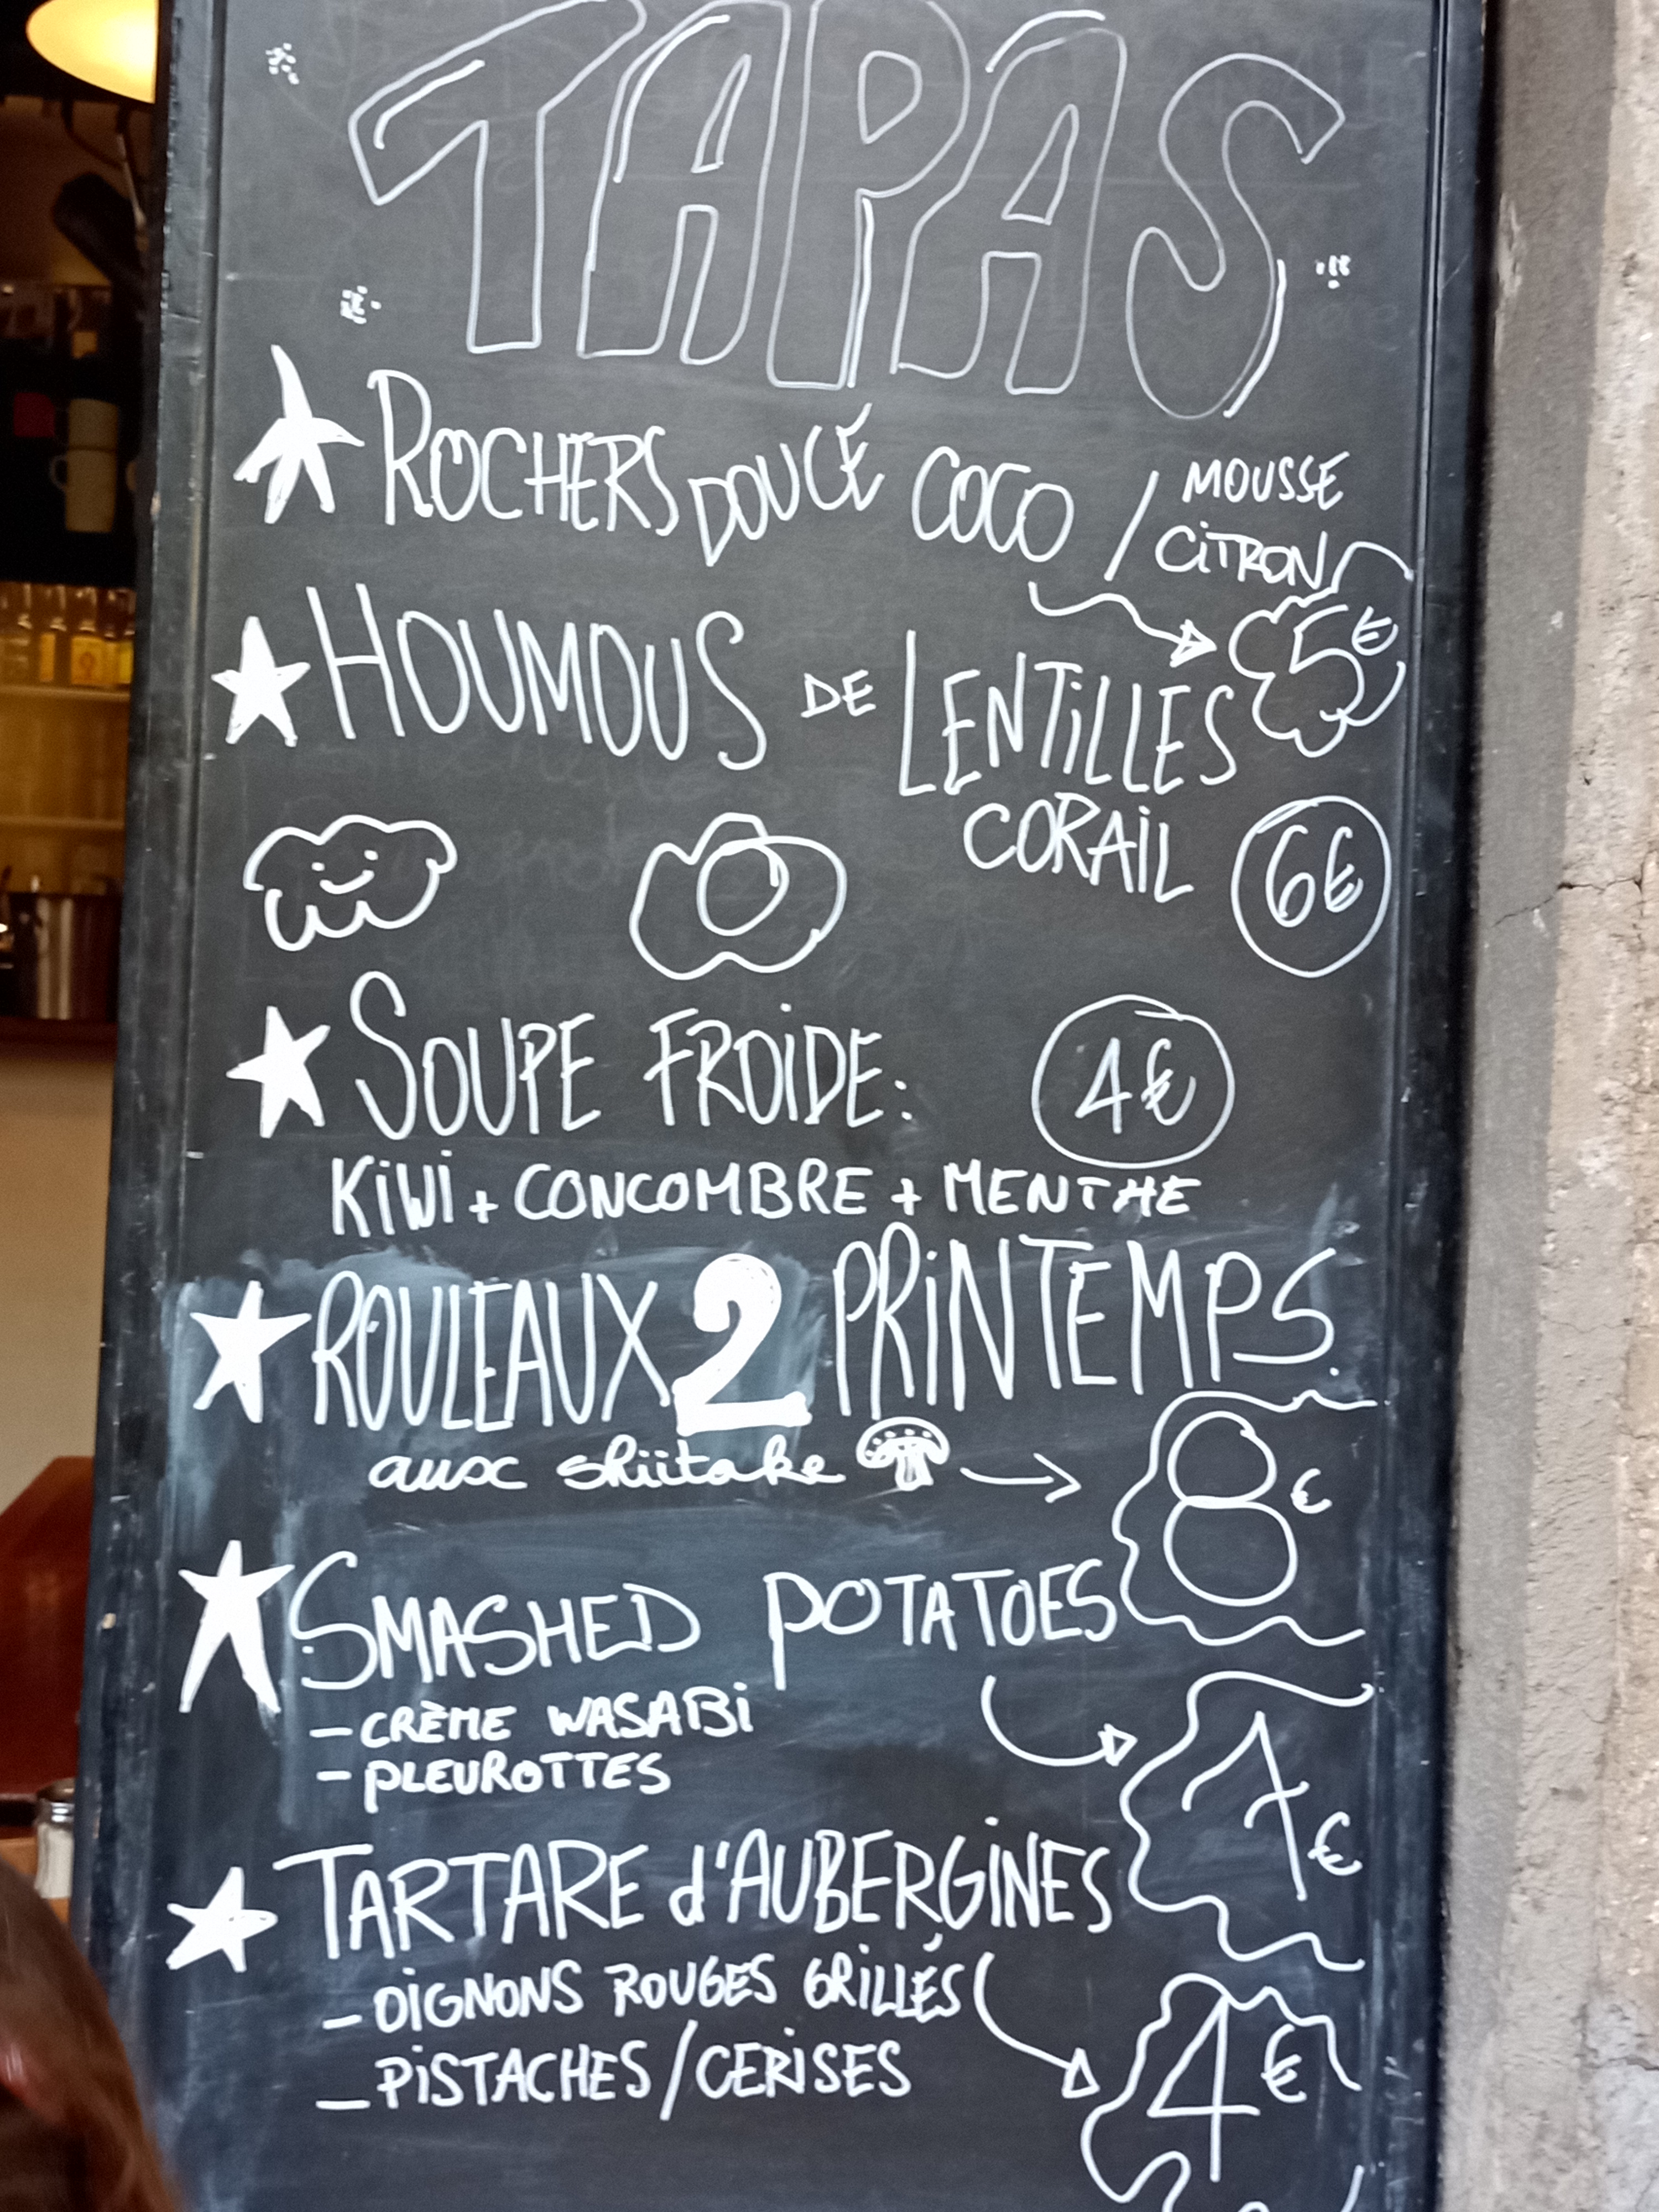 TAPAS
ROCHERS DOUCE COCO / MOUSSE
CITRON
5€
HOUMOUS DE LENTILLES
CORAIL 6€
SOUPE FROIDE: 4€
KIWI + CONCOMBRE + MENTHE
ROULEAUX 2 PRINTEMPS.
aux shiitake → 8€
SMASHED POTATOES
- CRÈME WASABI
- PLEUROTTES
7€
TARTARE d'AUBERGINES
- OIGNONS ROUGES GRILLÉS
- PISTACHES/CERISES
4€